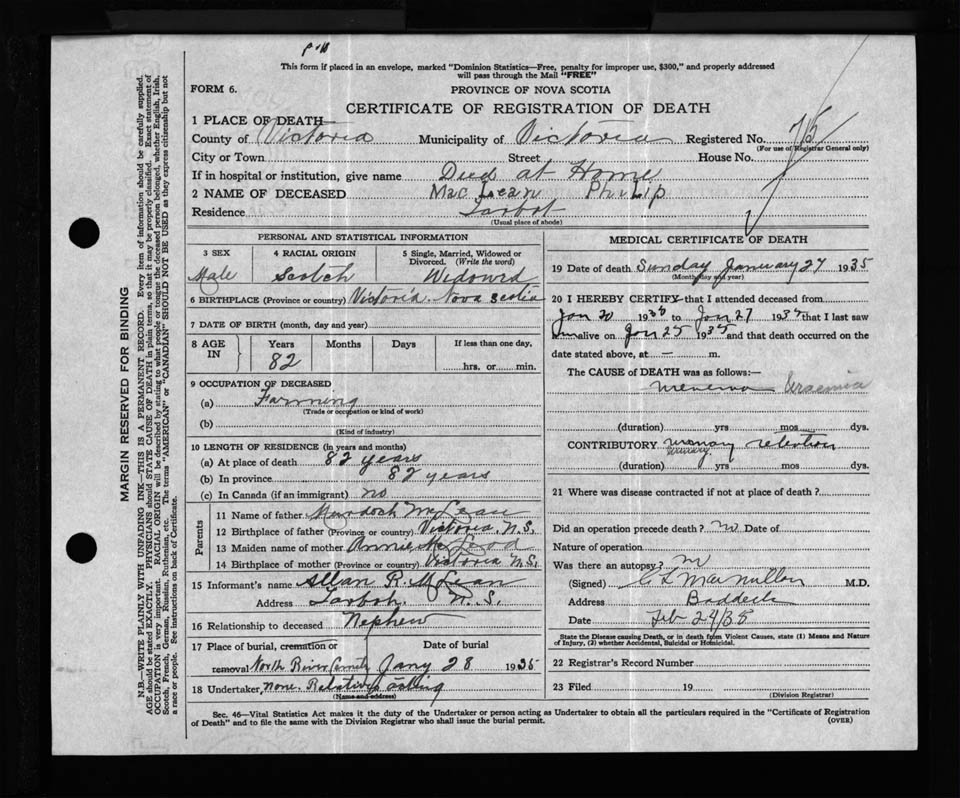 This form if placed in an envelope, marked "Dominion Statistics—Free, penalty for improper use, $300," and properly addressed
will pass through the Mail "FREE"
FORM 6.
PROVINCE OF NOVA SCOTIA
CERTIFICATE OF REGISTRATION OF DEATH
1 PLACE OF DEATH
County of Victoria Municipality of Victoria Registered No.
(For use of Registrar General only)
City or Town Street House No.
If in hospital or institution, give name Died at Home
2 NAME OF DECEASED MacLean Philip
Residence Tarbot
(Usual place of abode)
PERSONAL AND STATISTICAL INFORMATION
3 SEX 4 RACIAL ORIGIN 5 Single, Married, Widowed or Divorced. (Write the word)
Male Scotch Widowed
6 BIRTHPLACE (Province or country) Victoria. Nova Scotia
7 DATE OF BIRTH (month, day and year)
8 AGE IN Years Months Days If less than one day,
82 hrs. or min.
9 OCCUPATION OF DECEASED
(a) Farming
(Trade or occupation or kind of work)
(b)
(Kind of industry)
10 LENGTH OF RESIDENCE (in years and months)
(a) At place of death 82 years
(b) In province 82 years
(c) In Canada (if an immigrant) no
Parents
11 Name of father Murdoch McLean
12 Birthplace of father (Province or country) Victoria, N.S.
13 Maiden name of mother Annie McLeod
14 Birthplace of mother (Province or country) Victoria N.S.
15 Informant's name Allan R. McLean
Address Tarbot. N.S.
16 Relationship to deceased Nephew
17 Place of burial, cremation or removal Date of burial
North River Jany 28 1935
18 Undertaker, none. Relatives acting
(Name and address)
MEDICAL CERTIFICATE OF DEATH
19 Date of death Sunday January 27 1935
(Month, day and year)
20 I HEREBY CERTIFY that I attended deceased from
Jan 20 1935 to Jan 27 1935 that I last saw
him alive on Jan 25 1935 and that death occurred on the
date stated above, at — m.
The CAUSE of DEATH was as follows:—
Uraemia
(duration) yrs mos dys.
CONTRIBUTORY retention
(duration) yrs mos dys.
21 Where was disease contracted if not at place of death?
Did an operation precede death? no Date of
Nature of operation
Was there an autopsy? no
(Signed) C L MacMillan M.D.
Address Baddeck
Date Feb 24/35
State the Disease causing Death, or in death from Violent Causes, state (1) Means and Nature
of Injury, (2) whether Accidental, Suicidal or Homicidal.
22 Registrar's Record Number
23 Filed 19
(Division Registrar)
Sec. 46—Vital Statistics Act makes it the duty of the Undertaker or person acting as Undertaker to obtain all the particulars required in the "Certificate of Registration
of Death" and to file the same with the Division Registrar who shall issue the burial permit.
(OVER)
MARGIN RESERVED FOR BINDING
N.B.—WRITE PLAINLY WITH UNFADING INK—THIS IS A PERMANENT RECORD. Every item of information should be carefully supplied.
AGE should be stated EXACTLY. PHYSICIANS should STATE CAUSE OF DEATH in plain terms, so that it may be properly classified. Exact statement of
OCCUPATION is very important. RACIAL ORIGIN will be described by stating to what people or tongue the deceased person belonged, whether English, Irish,
Scotch, French, German, Russian, Ruthenian, etc. The terms "AMERICAN" or "CANADIAN" SHOULD NOT BE USED as they express citizenship but not
a race or people. See instructions on back of Certificate.